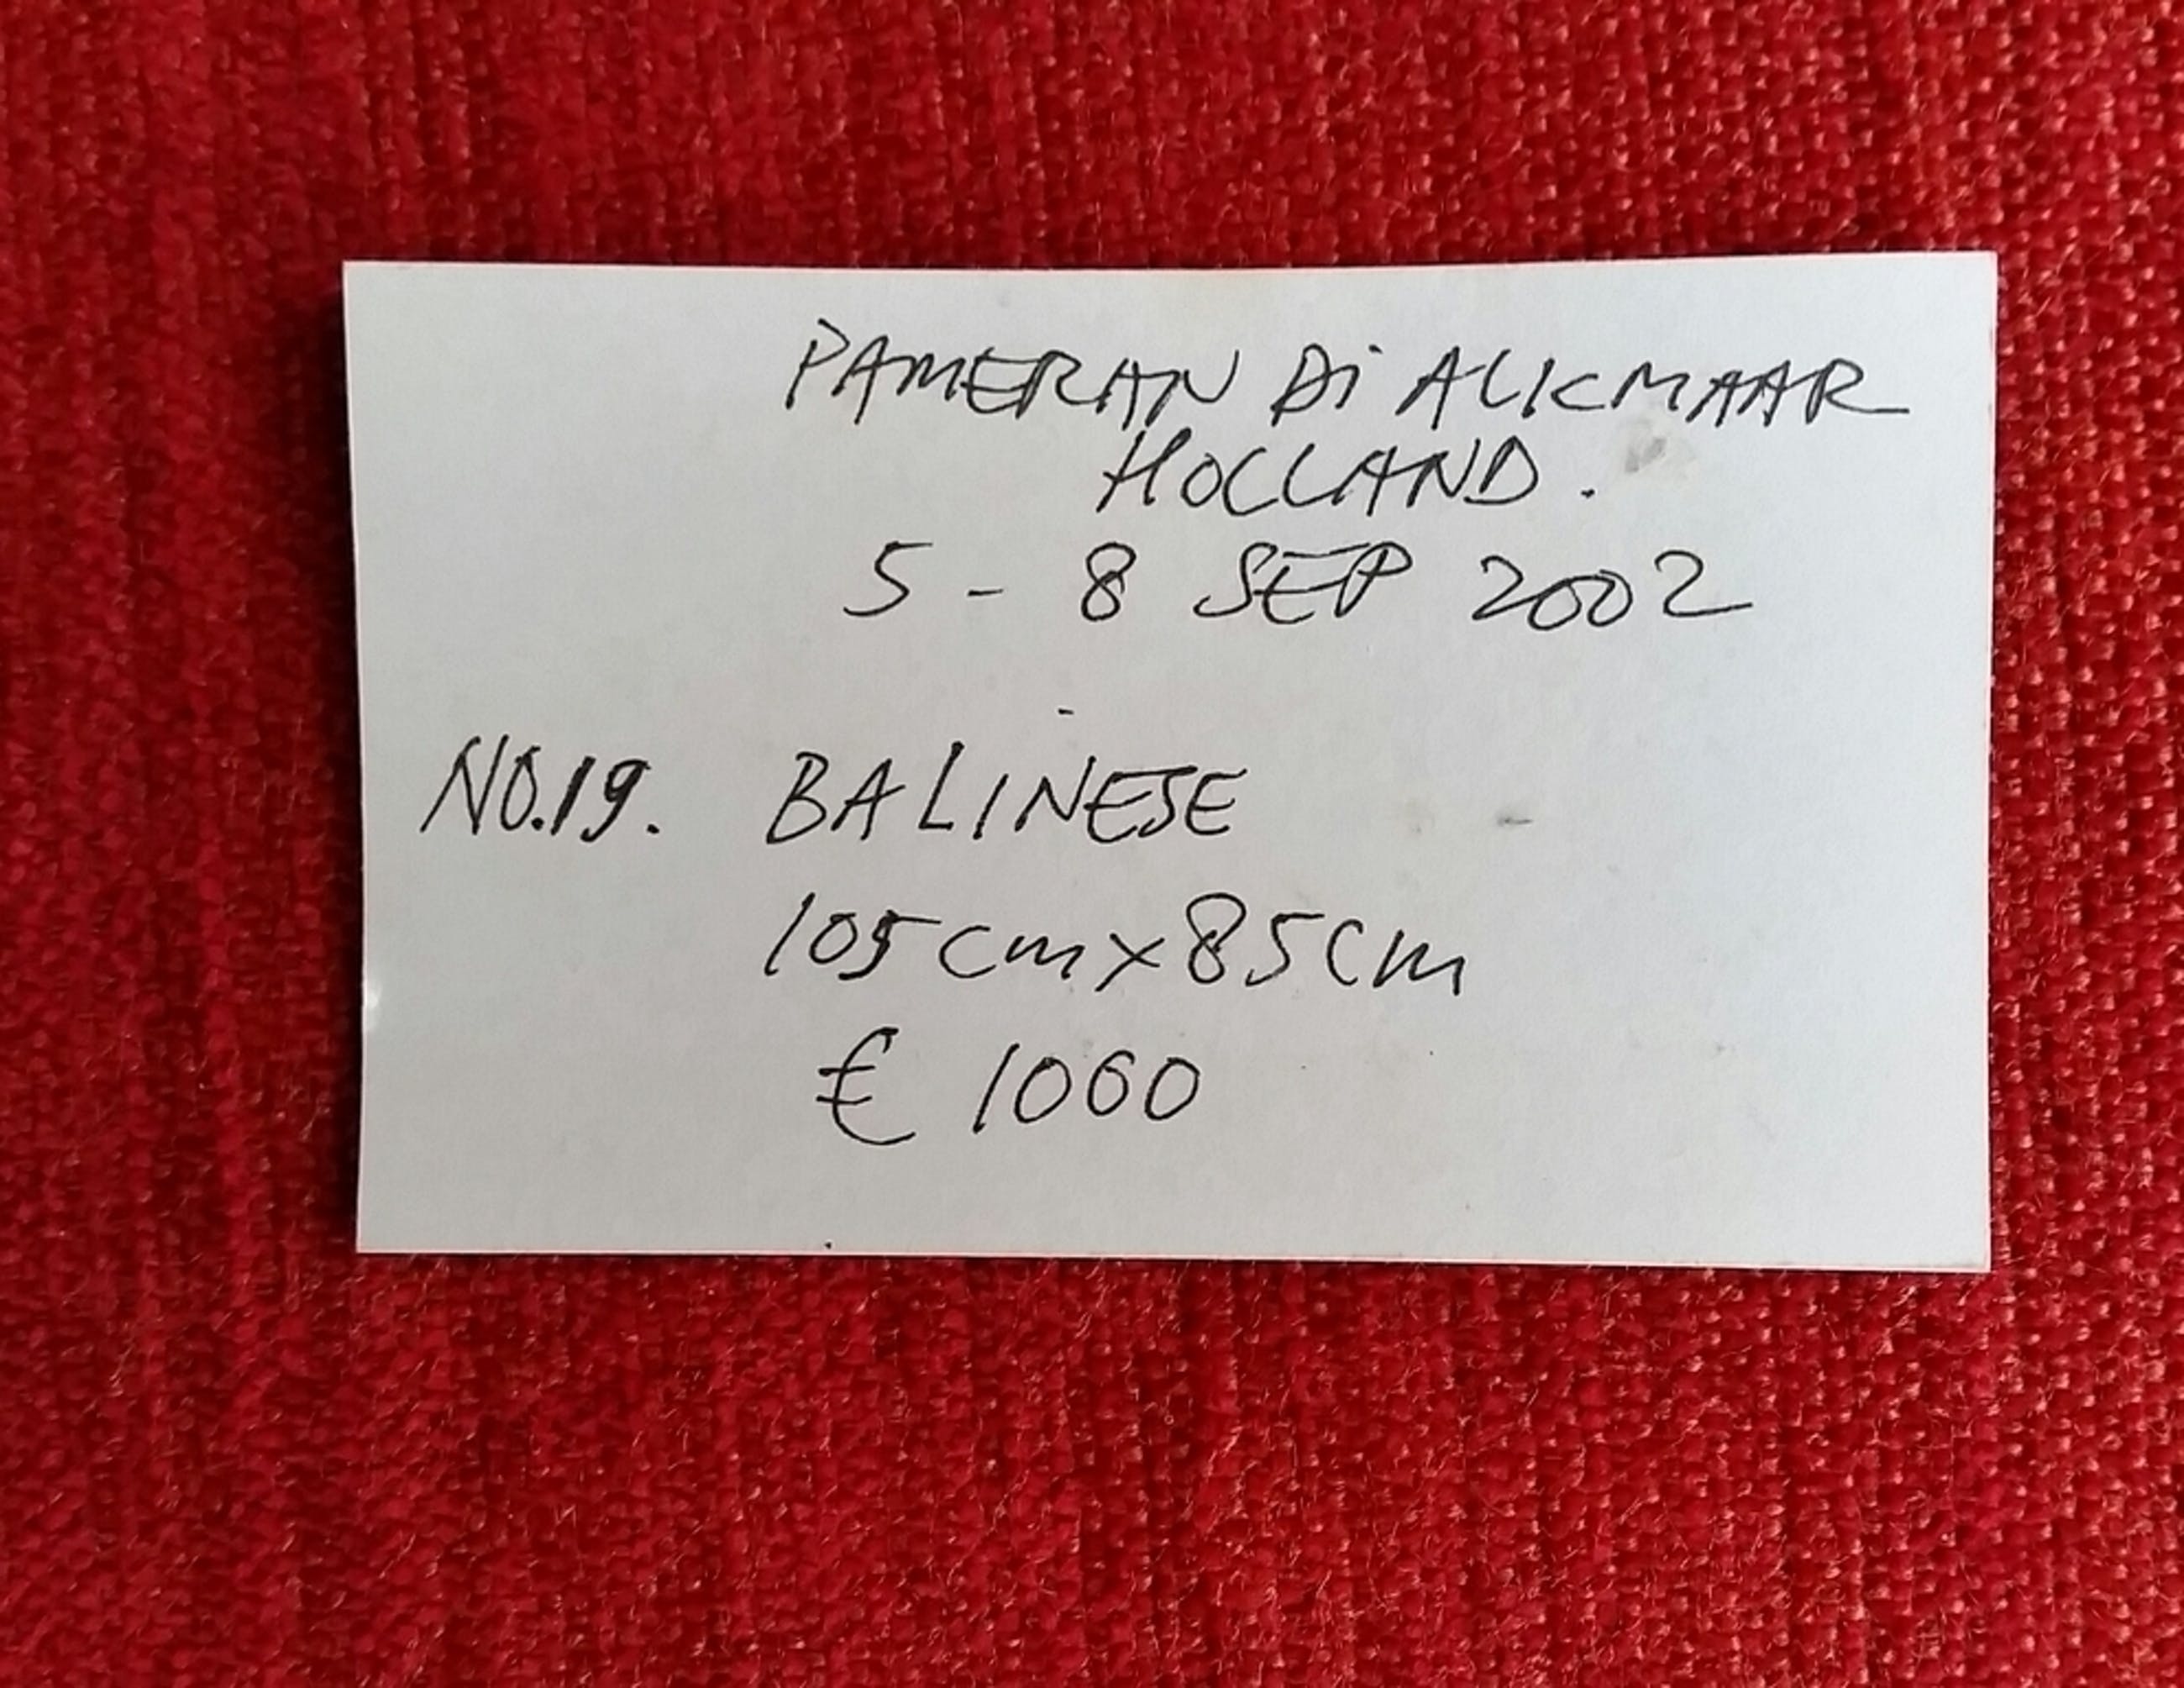 PAMERAN Di ALKMAAR
HOLLAND.
5 - 8 SEP 2002
NO.19. BALINESE
105cm x 85cm
€ 1060